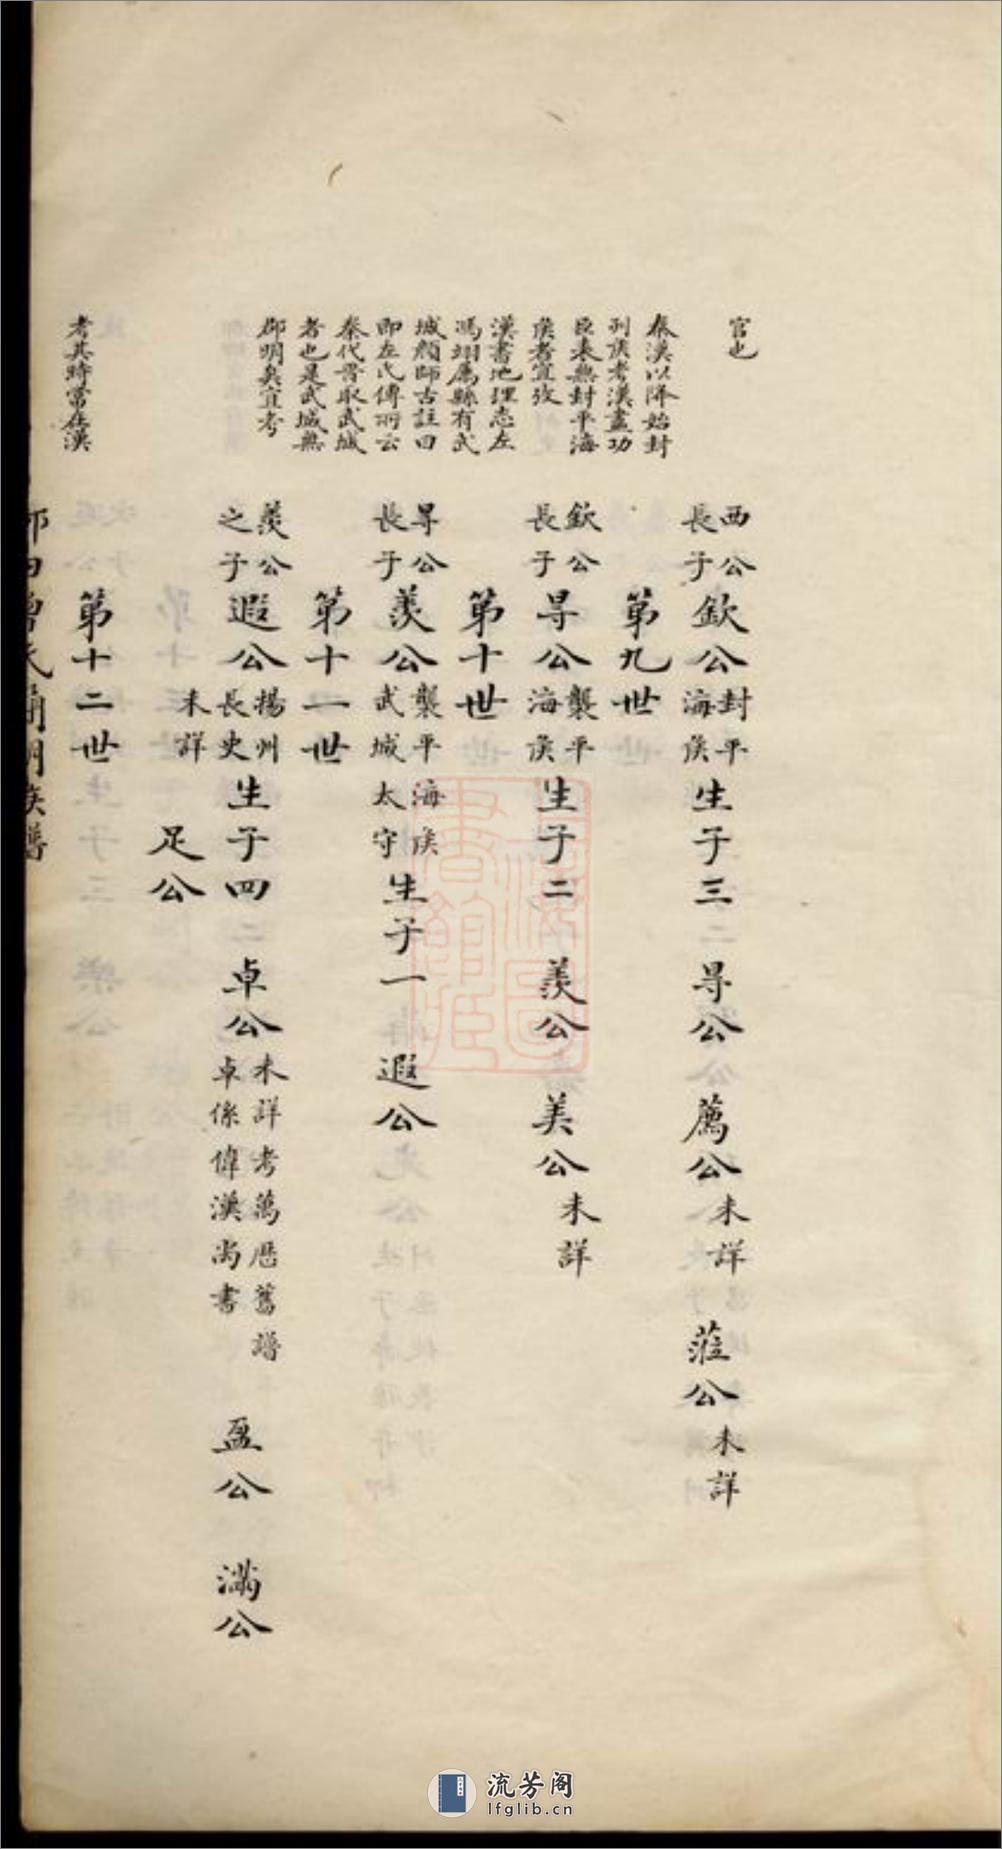 官也
秦漢以降始封
列侯考漢書功
臣表無封平海
侯者宜攷
漢書地理志左
馮翊屬縣有武
城顏師古註曰
即左氏傳所云
秦伐晉取武城
者也是武城無
郡明矣宜考
考其時當在漢
西公長子 欽公 封平海侯 生子三 尋公 薦公 未詳 蒞公 未詳
第九世
欽公長子 尋公 襲平海侯 生子二 羨公 美公 未詳
第十世
尋公長子 羨公 襲平海侯武城太守 生子一 遐公
第十一世
羨公之子 遐公 揚州長史 生子四 卓公 未詳考萬曆舊譜卓係偉漢尚書 盈公 滿公
未詳 足公
第十二世
流芳阁
lfglib.cn